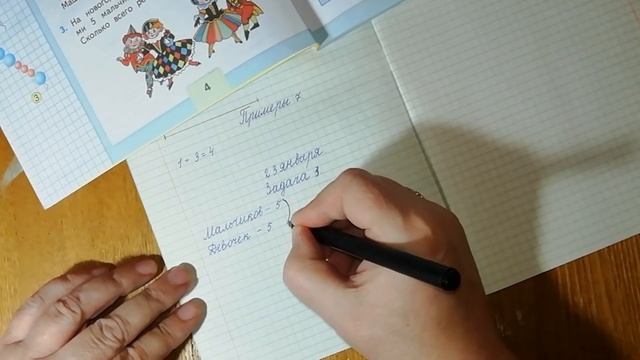 Маш
3. На нового
ми 5 мальчи
Сколько всего ре
4
3
Примеры 7
1 - 3 = 4
23 января
Задача 3
Мальчиков - 5
Девочек - 5